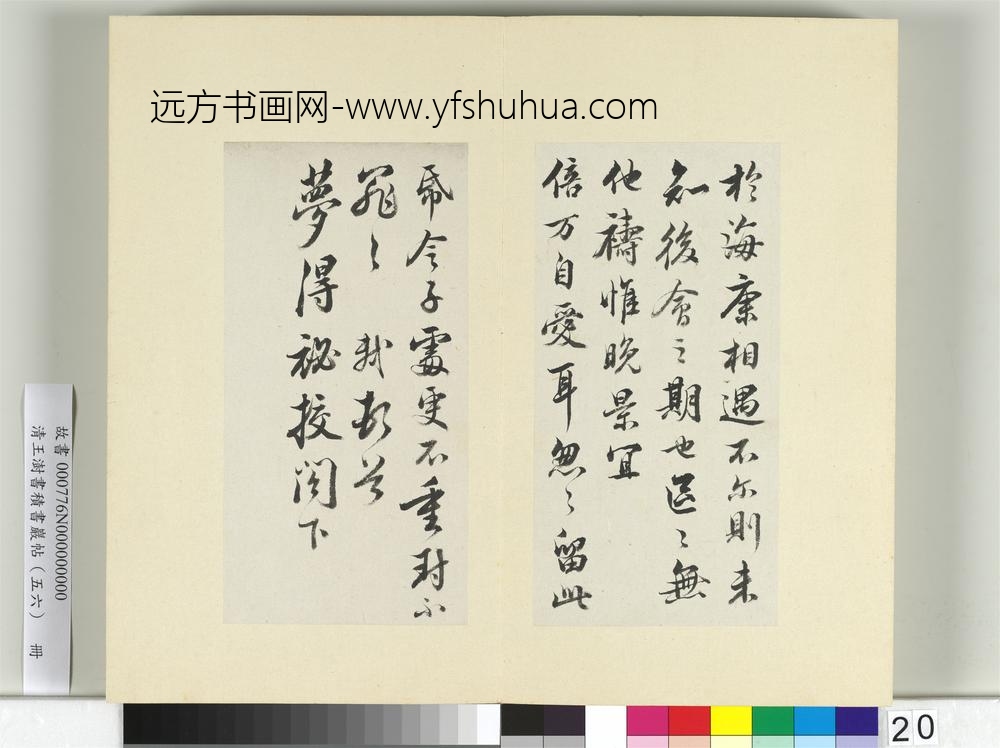 远方书画网-www.yfshuhua.com
於海康相遇不尔則未
知後會之期也區〻無
他禱惟晚景宜
倍万自愛耳忽〻留此
帋令子處更不重封不
罪〻 軾頓首
夢得祕挍閣下
故書 000776N000000000
清王澍書積書巖帖（五六） 冊
20